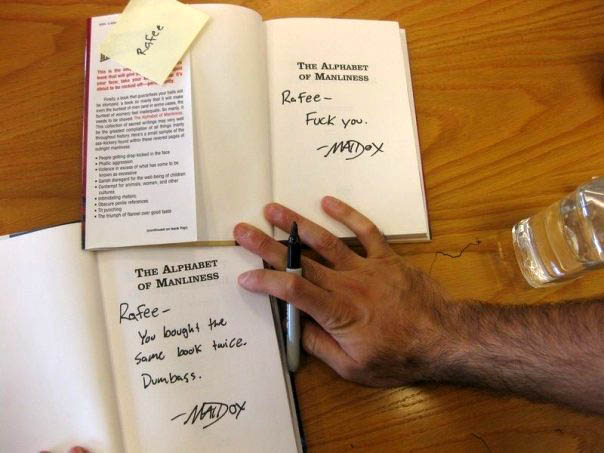 Rafee
This is the
book that will give
your face,
about to be
Finally, a book that guarantees your balls will
be
even the burliest of men (and in some cases, the
burliest of women) feel inadequate. So manly, it
needs to be shaved. The Alphabet of Manliness
This collection of sacred writings may very well
be the greatest compilation of all things manly
throughout history. Here's a small sample of the
ass-kickery found within these revered pages of
outright manliness:
• People getting drop-kicked in the face
• Phallic aggression
• Violence in excess of what has come to be
known as excessive
• Garish disregard for the well-being of children
• Contempt for animals, women, and other
cultures
• Intimidating rhetoric
• Obscure penile references
• Tit punching
• The triumph of flannel over good taste
(continued on back flap)
THE ALPHABET
OF MANLINESS
Rafee-
Fuck you.
-MADDOX
THE ALPHABET
OF MANLINESS
Rafee-
You bought the
same book twice.
Dumbass.
-MADDOX